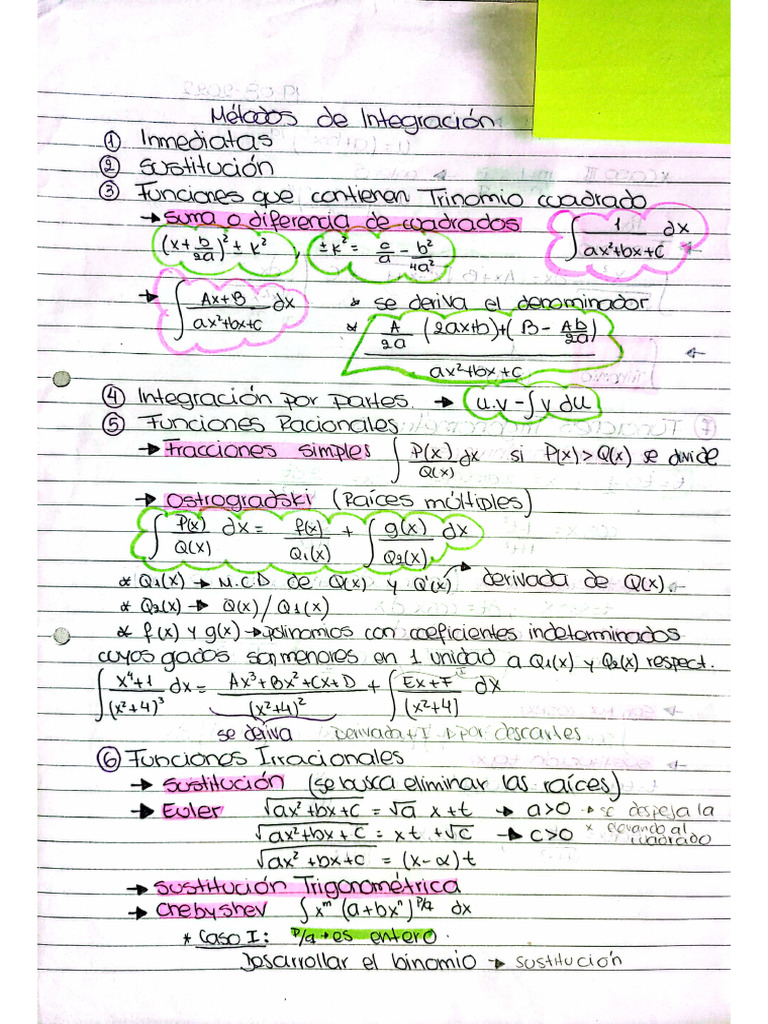 Métodos de Integración
① Inmediatas
② Sustitución
③ Funciones que contienen Trinomio cuadrado
→ Suma o diferencia de cuadrados
∫ 1/(ax²+bx+c) dx
(x+b/2a)² ± k² , ±k² = c/a - b²/4a²
→ ∫ (Ax+B)/(ax²+bx+c) dx * se deriva el denominador
* (A/2a (2ax+b)+(B - Ab/2a))/(ax²+bx+c)
④ Integración por partes. → u.v - ∫v du
⑤ Funciones Racionales
→ Fracciones simples ∫ P(x)/Q(x) dx si P(x)>Q(x) se divide
→ Ostrogradski (Raíces múltiples)
∫ P(x)/Q(x) dx = f(x)/Q1(x) + ∫ g(x)/Q2(x) dx
* Q1(x) → M.C.D de Q(x) y Q'(x) → derivada de Q(x).
* Q2(x) → Q(x)/Q1(x)
* f(x) y g(x) → polinomios con coeficientes indeterminados
cuyos gados son menores en 1 unidad a Q1(x) y Q2(x) respect.
∫ (x⁴+1)/(x²+4)³ dx = (Ax³+Bx²+Cx+D)/(x²+4)² + ∫ (Ex+F)/(x²+4) dx
se deriva Derivada + I por descartes
⑥ Funciones Irracionales
→ Sustitución (se busca eliminar las raíces)
→ Euler √(ax²+bx+c) = √a x+t → a>0 → se despeja la
√(ax²+bx+c) = xt +√c → c>0 x elevando al cuadrado
√(ax²+bx+c) = (x-α)t
→ Sustitución Trigonométrica
→ Chebyshev ∫ xᵐ (a+bxⁿ)^(p/q) dx
* Caso I: p/q → es entero.
Desarrollar el binomio → sustitución